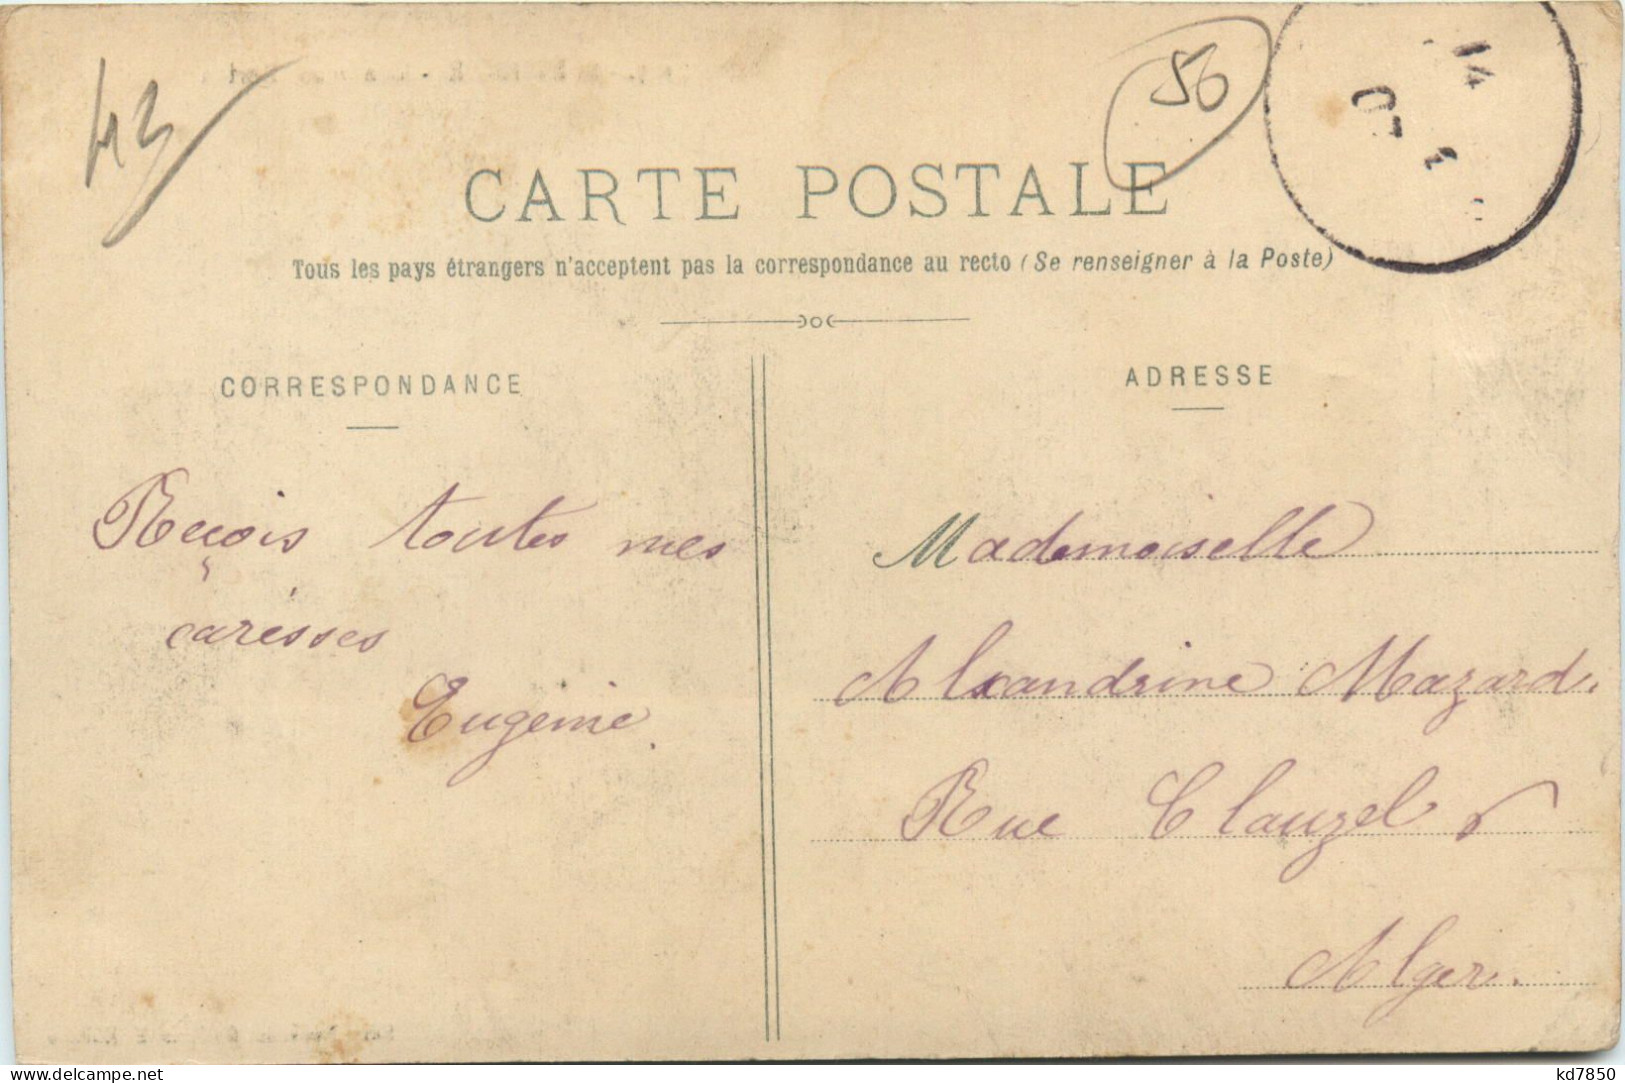 43
56
14
07
CARTE POSTALE
Tous les pays étrangers n'acceptent pas la correspondance au recto (Se renseigner à la Poste)
CORRESPONDANCE
ADRESSE
Reçois toutes mes
caresses
Eugénie.
Mademoiselle
Alexandrine Mazard.
Rue Clauzel
Alger.
kd7850